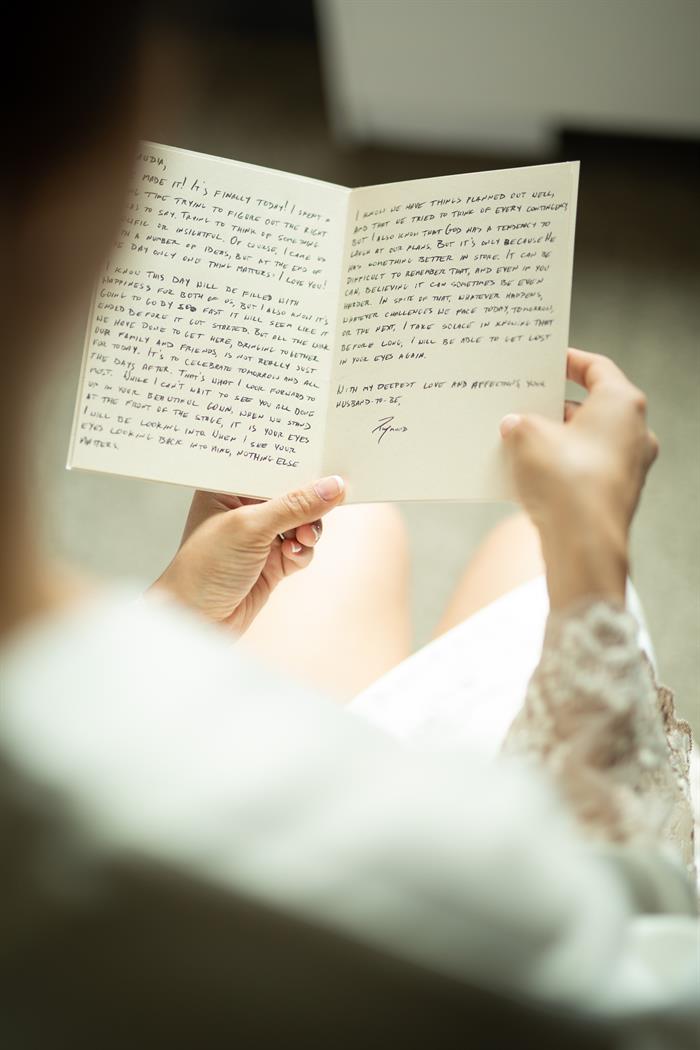 UDIA,
MADE IT! IT'S FINALLY TODAY! I SPENT A
TIME TRYING TO FIGURE OUT THE RIGHT
TO SAY. TRYING TO THINK OF SOMETHING
OR INSIGHTFUL. OF COURSE, I CAME UP
A NUMBER OF IDEAS, BUT AT THE END OF
DAY ONLY ONE THING MATTERS: I LOVE YOU!
I KNOW THIS DAY WILL BE FILLED WITH
HAPPINESS FOR BOTH OF US, BUT I ALSO KNOW IT'S
GOING TO GO BY SO FAST IT WILL SEEM LIKE IT
ENDED BEFORE IT GOT STARTED. BUT ALL THE WORK
WE HAVE DONE TO GET HERE, BRINGING TOGETHER
OUR FAMILY AND FRIENDS, IS NOT REALLY JUST
FOR TODAY. IT'S TO CELEBRATE TOMORROW AND ALL
THE DAYS AFTER. THAT'S WHAT I LOOK FORWARD TO
MOST. WHILE I CAN'T WAIT TO SEE YOU ALL DONE
UP IN YOUR BEAUTIFUL GOWN, WHEN WE STAND
AT THE FRONT OF THE STAGE, IT IS YOUR EYES
I WILL BE LOOKING INTO. WHEN I SEE YOUR
EYES LOOKING BACK INTO MINE, NOTHING ELSE
MATTERS.
I KNOW WE HAVE THINGS PLANNED OUT WELL,
AND THAT WE TRIED TO THINK OF EVERY CONTINGENCY
BUT I ALSO KNOW THAT GOD HAS A TENDENCY TO
LAUGH AT OUR PLANS. BUT IT'S ONLY BECAUSE HE
HAS SOMETHING BETTER IN STORE. IT CAN BE
DIFFICULT TO REMEMBER THAT, AND EVEN IF YOU
CAN, BELIEVING IT CAN SOMETIMES BE EVEN
HARDER. IN SPITE OF THAT, WHATEVER HAPPENS,
WHATEVER CHALLENGES WE FACE TODAY, TOMORROW,
OR THE NEXT, I TAKE SOLACE IN KNOWING THAT
BEFORE LONG, I WILL BE ABLE TO GET LOST
IN YOUR EYES AGAIN.
WITH MY DEEPEST LOVE AND AFFECTION, YOUR
HUSBAND-TO-BE,